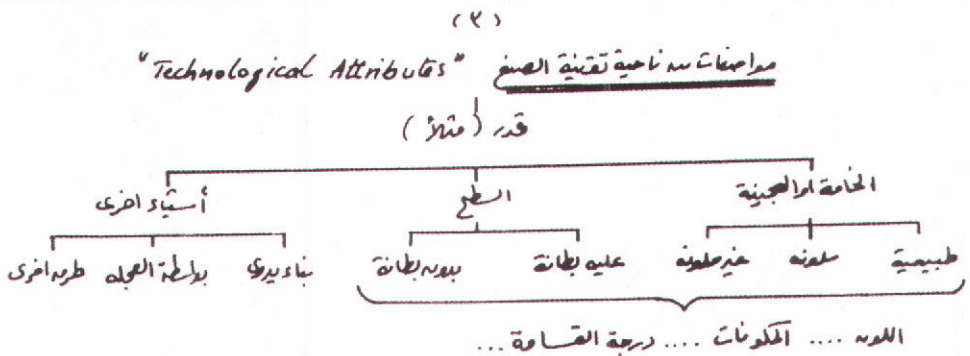 (٣)
مواصفات من ناحية تقنية الصنع "Technological Attributes"
قدر (مثلاً)
الخامة او العجينة السطح أشياء اخرى
طبيعية ملونه غير ملونه عليه بطانة بدون بطانة بناء يدوي بواسطة العجله طرق اخرى
اللون .... المكونات .... درجة القساوة ...